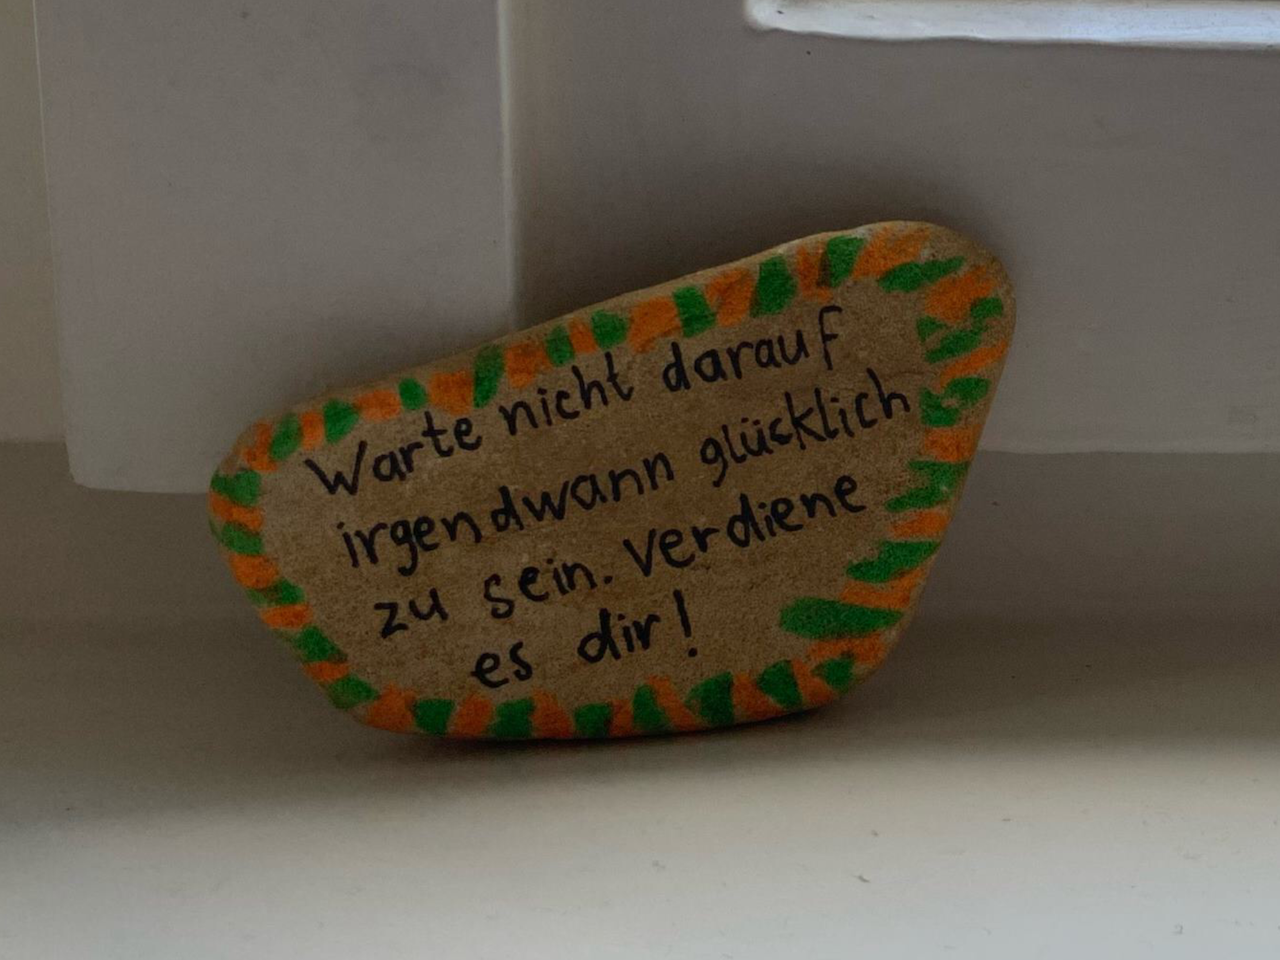 Warte nicht darauf
irgendwann glücklich
zu sein. Verdiene
es dir!